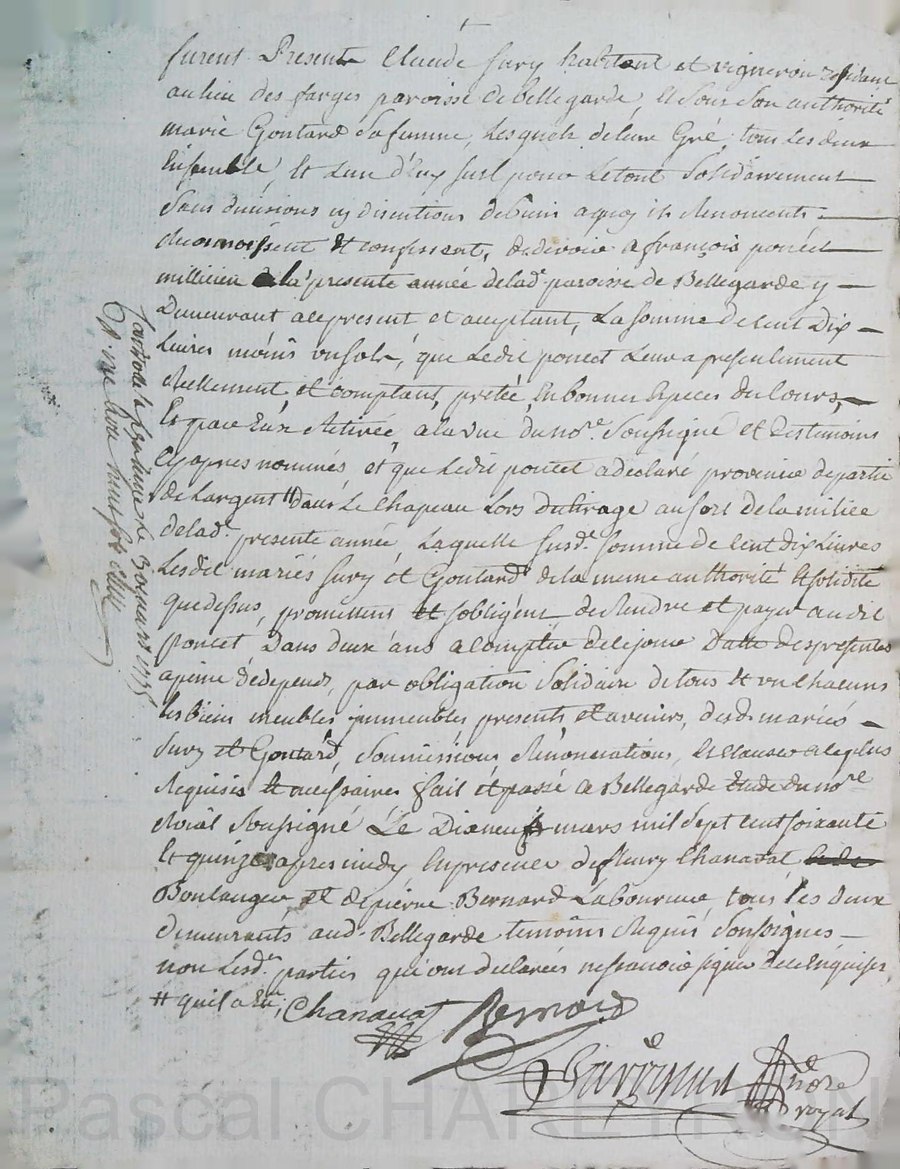 furent Presents Claude fury habitant et vigneron residant
au lieu des farges paroisse de bellegarde, et sous son authorité
marie Goutard sa femme, lesquels de leur Gré, tous les deux
Ensemble, et l'un d'Eux seul pour le tout Solidairement
Sans divisions ny discutions de biens a quoy ils Renoncents
Reconnoissent et confessents, de devoir a françois poncet
millicien de la presente année de lad. paroisse de Bellegarde y
Demeurant a ce present et aceptant, La somme de Cent Dix
Livres moins un sols, que Ledit poncet Leur a presentement
Reellement, et comptant, preté, En bonnes Espèces du Cours,
Et par Eux Retirée, a la vue du nore. Soussigné et des temoins
Cy apres nommés et que Ledit poncet a declaré provenir de partie
de L'argent # dans Le Chapeau Lors du tirage au sort de la milice
de lad. presente année, Laquelle susde. somme de Cent dix Livres
Lesdits mariés fury et Goutard de la meme authorité et solidité
que dessus, promettent et s'obligent de Rendre et payer audit
poncet Dans deux ans a compter de ce jour Datte des presentes
a peine de depends, par obligation Solidaire de tous et un chacuns
les Biens meubles immeubles presents et avenirs, desds. mariés
fury et Goutard, Soumissions Renonciations, et Clauses
Requises et necessaires fait et passé a Bellegarde Etude du nore
Roïal Soussigné Le Dixneuf mars mil Sept cent soixante
et quinze apres midy, En presence de fleury Chanavat
Boulanger, et de pierre Bernard Laboureur tous les deux
Demeurants aud. Bellegarde temoins Requis Soussignés
non Lesds. parties qui ont declarées ne sçavoir signer de ce Enquises,
# qu'il a Eu,
Chanavat Bernard
nore royal
Controllé le 30 mars 1775
Pascal CHARETRON